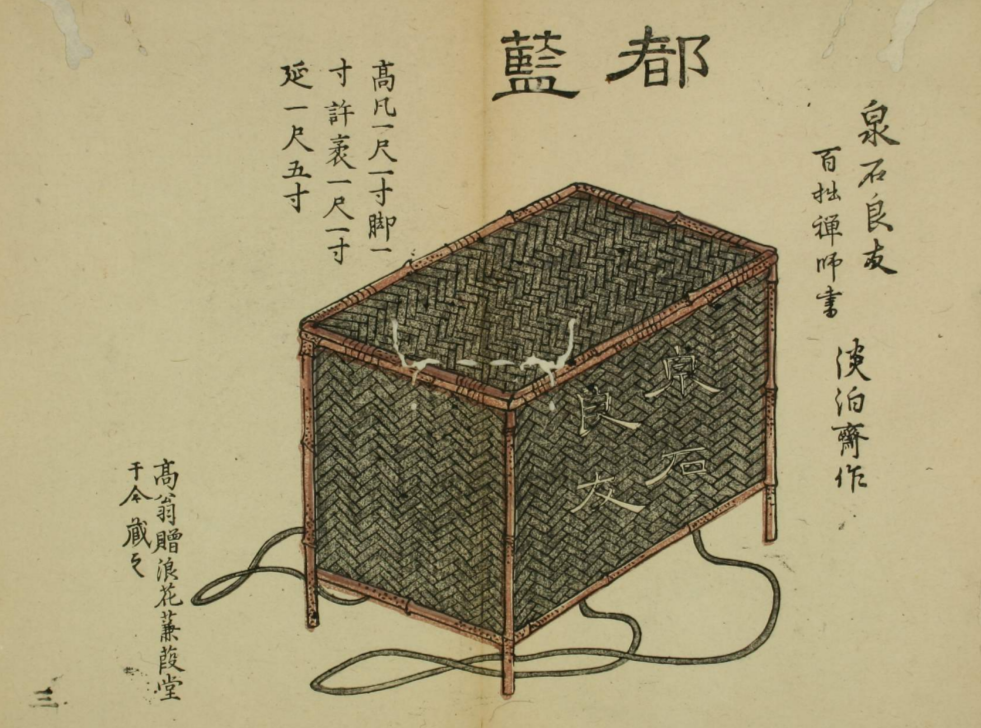 都藍
泉石良友
百拙禅師書
淡泊齋作
髙凡一尺一寸脚一
寸許袤一尺一寸
延一尺五寸
泉石
良友
髙翁贈浪花蒹葭堂
于今蔵之
三